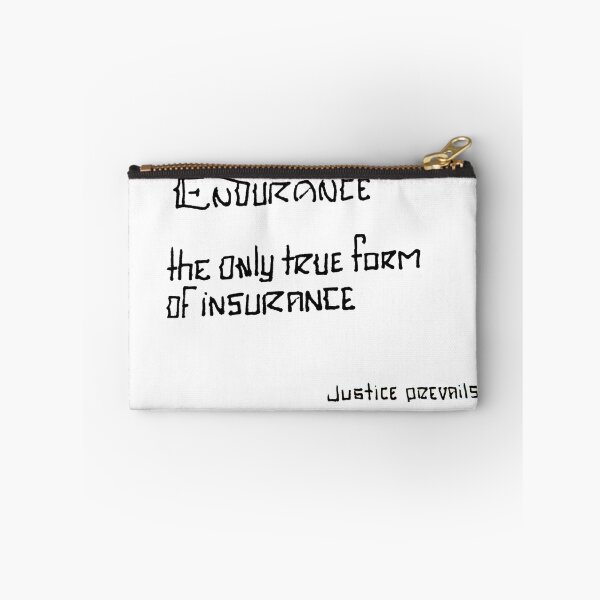 Endurance
the only true form
of insurance
Justice prevails